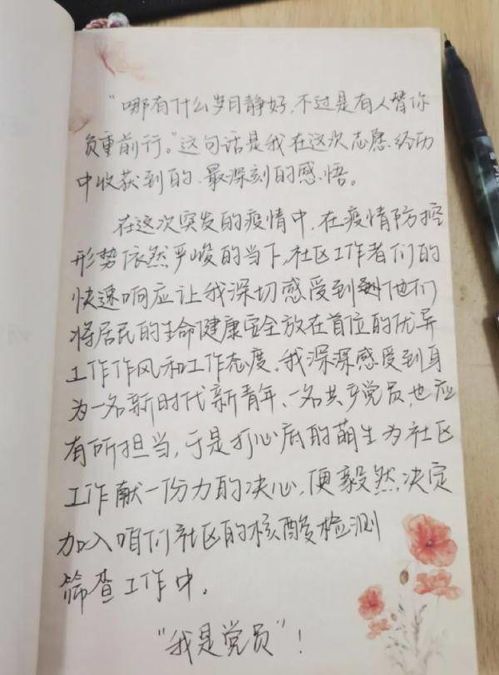 “哪有什么岁月静好,不过是有人替你
负重前行。”这句话是我在这次志愿经历
中收获到的、最深刻的感悟。
在这次突发的疫情中,在疫情防控
形势依然严峻的当下,社区工作者们的
快速响应让我深切感受到他们
将居民的生命健康安全放在首位的优异
工作作风和工作态度。我深深感受到身
为一名新时代新青年、一名共产党员,也应
有所担当,于是打心底的萌生为社区
工作献一份力的决心,便毅然决定
加入咱们社区的核酸检测
筛查工作中。
“我是党员”!